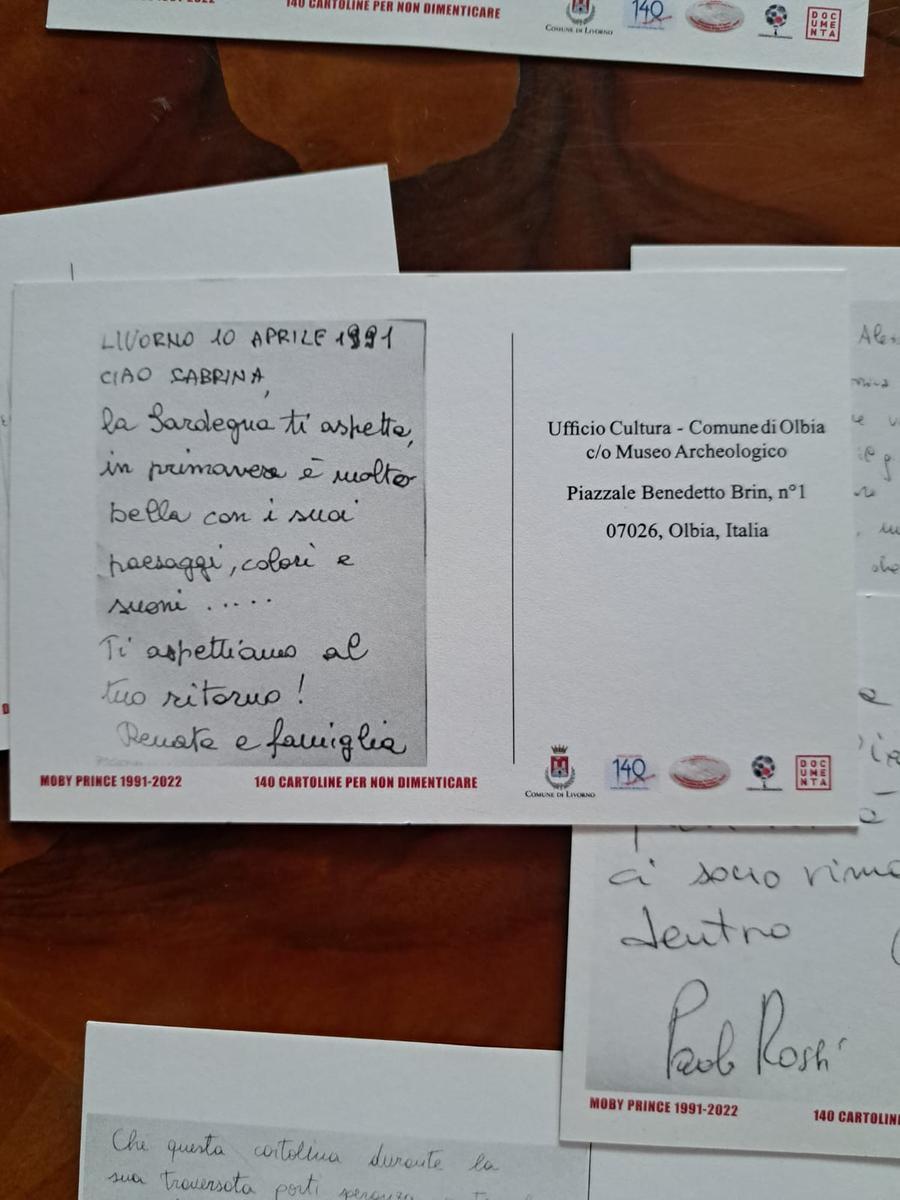 140 CARTOLINE PER NON DIMENTICARE
COMUNE DI LIVORNO
140
DOC
UME
NTA
LIVORNO 10 APRILE 1991
CIAO SABRINA,
la Sardegna ti aspetta,
in primavera è molto
bella con i suoi
paesaggi, colori e
suoni .....
Ti aspettiamo al
tuo ritorno!
Renata e famiglia
Ufficio Cultura - Comune di Olbia
c/o Museo Archeologico
Piazzale Benedetto Brin, n°1
07026, Olbia, Italia
MOBY PRINCE 1991-2022
140 CARTOLINE PER NON DIMENTICARE
COMUNE DI LIVORNO
140
DOC
UME
NTA
ci sono
dentro
Paolo Rossi
MOBY PRINCE 1991-2022
140
Che questa cartolina durante la
sua traversata porti speranza